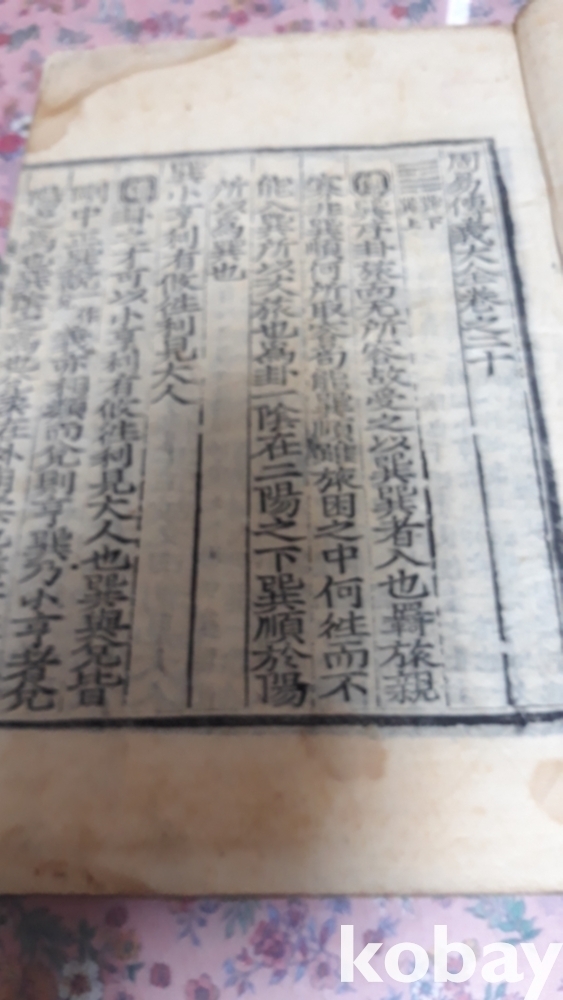 周易傳義大全卷之二十
巽下
巽上
巽序卦旅而无所容故受之以巽巽者入也羇旅親
寡非巽順何所取容苟能巽順雖旅困之中何徃而不
能入巽所以次旅也爲卦一陰在二陽之下巽順於陽
所以爲巽也
巽小亨利有攸徃利見大人
卦之才可以小亨利有攸徃利見大人也巽與兌皆
剛中正巽說義亦相類而兌則亨巽乃小亨者兌
陽之爲也巽陰之爲也兌柔在外用
kobay